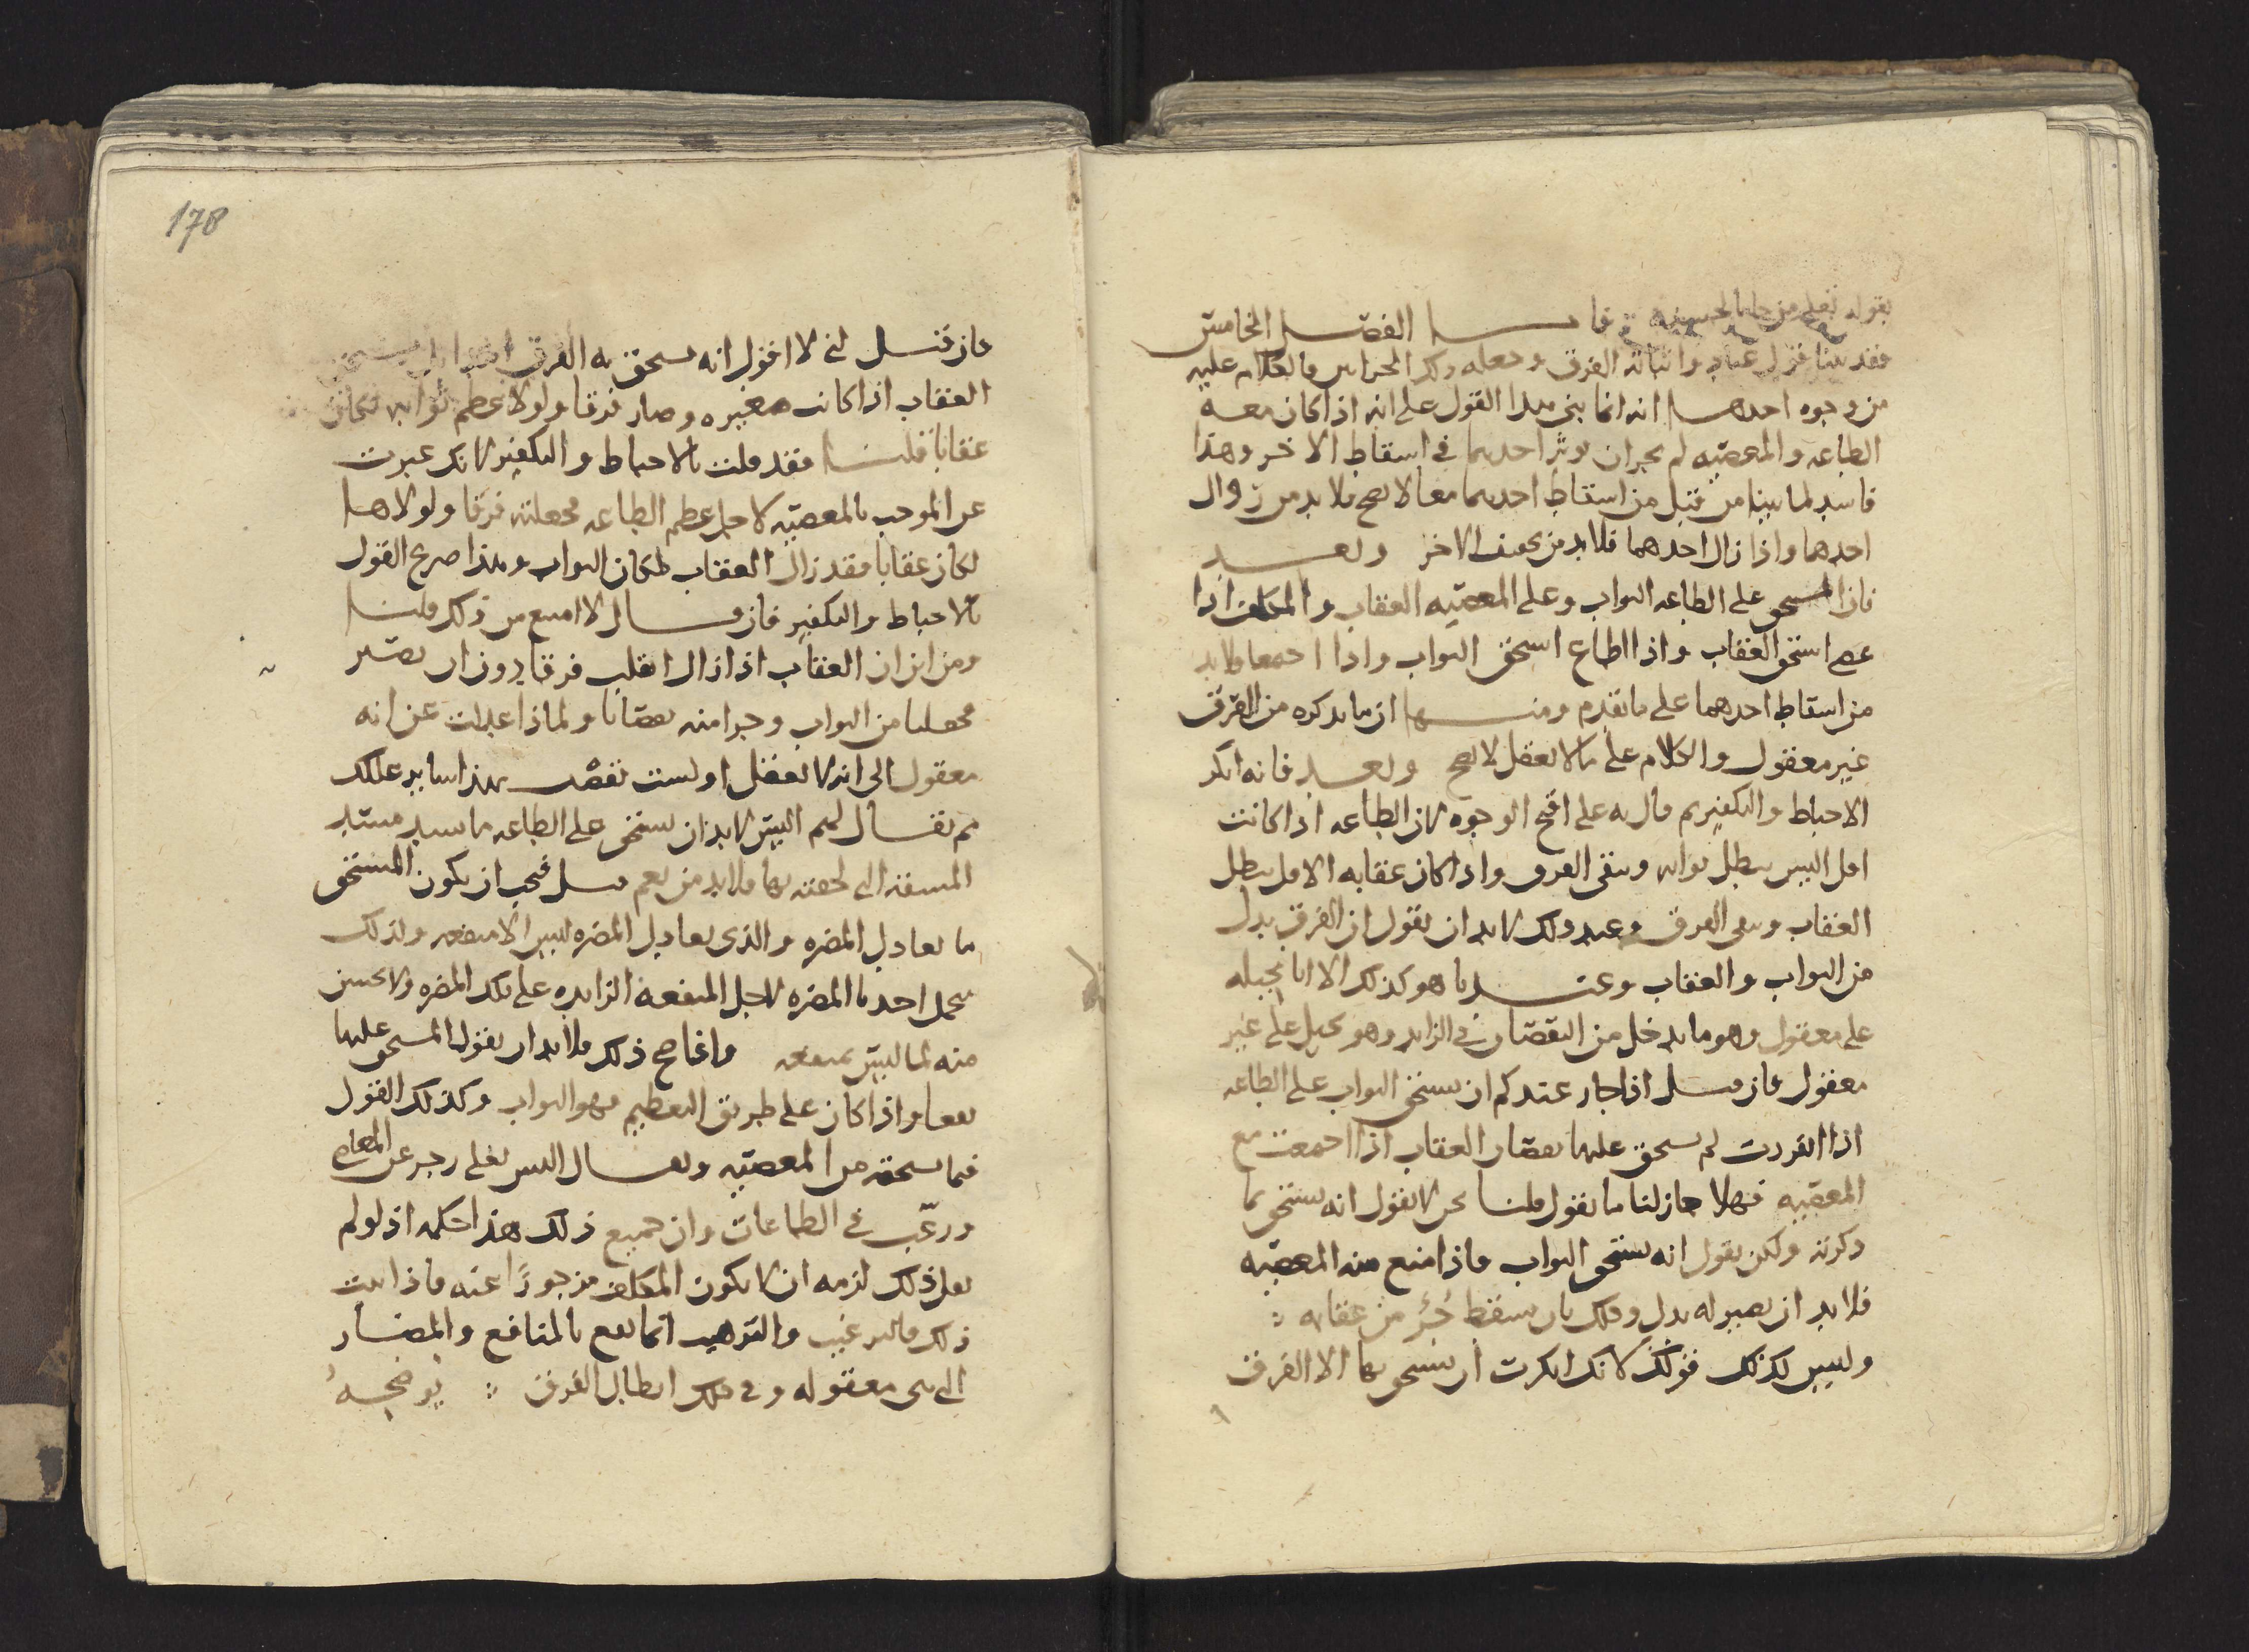 فاما الفصل الخامس
فقد بينا قول عباد واثباته الفرق وجعله ذلك الجزاء والكلام عليه
من وجوه احدها انه انما بنى هذا القول على انه اذا كان معه
الطاعه والمعصيه لم يجز ان يوثر احدهما في اسقاط الاخر وهذا
فاسد لما بينا من قبل من اسقاط احدهما معا لا يصح فلا بد من زوال
احدهما واذا زال احدهما فلابد من الاخر وبعد
فان المستحق على الطاعه الثواب وعلى المعصيه العقاب والمكلف اذا
عصى استحق العقاب واذا اطاع استحق الثواب واذا اجتمعا فلابد
من اسقاط احدهما على ما تقدم ومنها ان ما يذكره من الفرق
غير معقول والكلام على ما لا يعقل لا يصح وبعد فانه انكر
الاحباط والتكفير ثم قال به على اقبح الوجوه لان الطاعه اذا كانت
اقل اليس يبطل ثوابه ويبقى الفرق واذا كان عقابه الاقل يبطل
العقاب ويبقى الفرق وعند ذلك لابد ان يقول ان الفرق بدل
من الثواب والعقاب وعندنا هو كذلك الا انا نحيله
على معقول وهو ما يدخل من النقصان في الزايد وهو يحيل على غير
معقول فان قيل اذا جاز عندكم ان يستحق الثواب على الطاعه
اذا انفردت ثم يستحق عليها نقصان العقاب اذا اجتمعت مع
المعصيه فهلا جاز لنا ما نقول قلنا نحن لا نقول انه يستحق بها
ذكرته ولكن نقول انه يستحق الثواب فاذا منع منه المعصيه
فلابد ان يصير له بدل وذلك بان يسقط جزؤ من عقابه
وليس كذلك قولك لانك انكرت ان يستحق بها الا الفرق
178
فان قيل اني لا اقول انه يستحق به الفرق
العقاب اذا كانت صغيره وصار فرقا ولولا عظم ثوابه لكان
عقابا قلنا فقد قلت بالاحباط والتكفير لانك عبرت
عن الموجب بالمعصيه لاجل عظم الطاعه فجعلته فرقا ولولاها
لكان عقابا فقد زال العقاب لمكان الثواب وهذا صريح القول
بالاحباط والتكفير فان قال لا امتنع من ذلك قلنا
ومن اين ان العقاب اذا زال انقلب فرقا دون ان يصير
من الثواب وجزا منه نقصانا ولماذا عدلت عن انه
معقول الى انه لا يعقل اولست تقصد بهذا ساير عللك
ثم يقال لهم اليس لابد ان يستحق على الطاعه ما يسد مسد
المشقه التي لحقته بها فلابد من نعم قيل فيجب ان يكون المستحق
ما يعادل المضره والذي يعادل المضره ليس الا منفعه ولذلك
يتحمل احدنا المضره لاجل المنفعه الزايده على تلك المضره ولا يحسن
منه لما ليس بمنفعه واذا صح ذلك فلابد ان يقول المستحق عليها
نفعا واذا كان على طريق التعظيم فهو الثواب وكذلك القول
فيما يستحقه من المعصيه ويقال اليس تعالى زجر عن المعاصي
ورغّب في الطاعات وان جميع ذلك هذا حكمه اذ لو لم
يقل ذلك لزمه ان لا يكون المكلف مزجورًا عنه فاذا ثبت
ذلك فالترغيب والترهيب انما يقع بالمنافع والمضار
التي هي معقوله وفي ذلك ابطال الفرق يوضحه